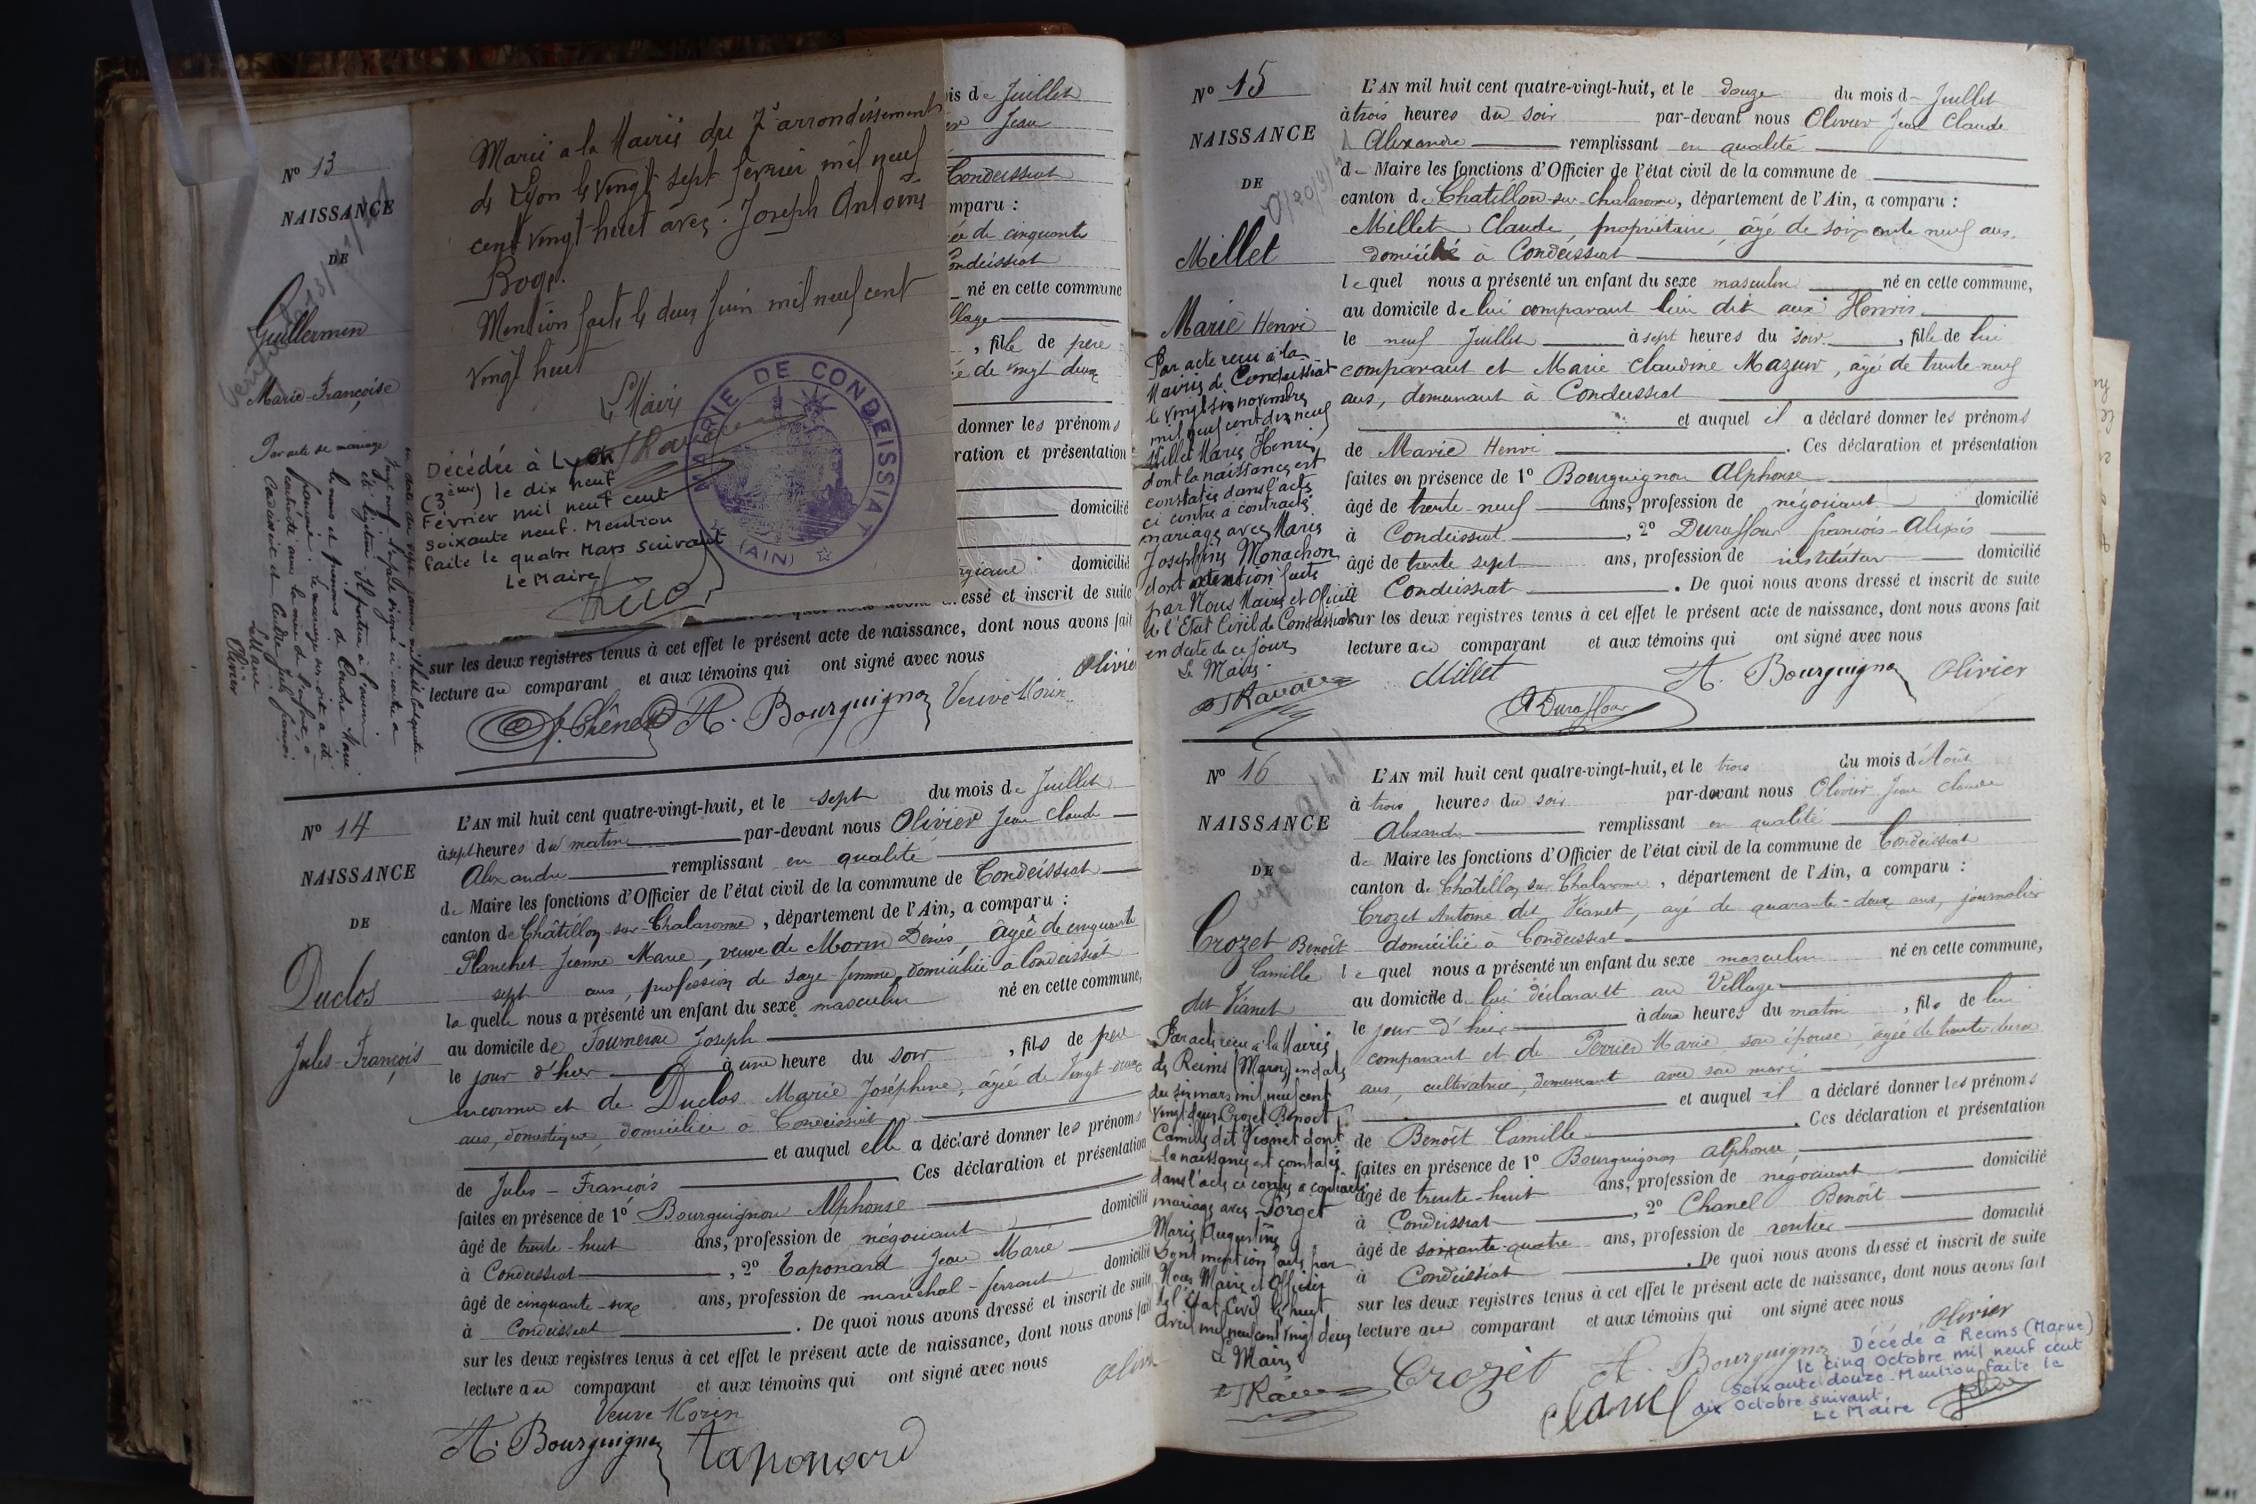 N° 13
NAISSANCE
DE
Guillermin
Marie-Françoise
Par acte de mariage
Le Maire
Olivier
Marié a la Mairie du 7e arrondissement
de Lyon le vingt sept février mil neuf
cent vingt huit avec Joseph Antoine
Roge.
Mention faite le deux Juin mil neuf cent
vingt huit
Le Maire
MAIRIE DE CONDEISSIAT
(AIN)
Décédée à Lyon
(3ème) le dix neuf
Février mil neuf cent
soixante neuf. Mention
faite le quatre Mars suivant
Le Maire
is de Juillet
Jean
Condeissiat
mparu :
ée de cinquante
ondeissiat
né en cette commune
llage
, fille de père
e de vingt deux
donner les prénoms
ration et présentation
domicilié
domicilié
essé et inscrit de suite
sur les deux registres tenus à cet effet le présent acte de naissance, dont nous avons fait
lecture au comparant et aux témoins qui ont signé avec nous
Olivier
A. Bourguignon Veuve Morin
N° 14
NAISSANCE
DE
Duclos
Jules-François
L'AN mil huit cent quatre-vingt-huit, et le sept du mois de Juillet
à sept heures du matin par-devant nous Olivier Jean Claude
Alexandre remplissant en qualité
de Maire les fonctions d'Officier de l'état civil de la commune de Condeissiat
canton de Châtillon-sur-Chalaronne, département de l'Ain, a comparu :
Planchet Jeanne Marie, veuve de Morin Denis, âgée de cinquante
sept ans, profession de sage-femme, domiciliée à Condeissiat
laquelle nous a présenté un enfant du sexe masculin né en cette commune,
au domicile de Joseph
le jour d'hier à une heure du soir, fils de père
inconnu et de Duclos Marie Joséphine, âgée de Vingt-deux
ans, domestique, domiciliée à Condeissiat
et auquel elle a déclaré donner les prénoms
de Jules-François Ces déclaration et présentation
faites en présence de 1° Bourguignon Alphonse
âgé de trente-huit ans, profession de négociant domicilié
à Condeissiat, 2° Taponard Jean Marie
âgé de cinquante-six ans, profession de maréchal-ferrant domicilié
à Condeissiat. De quoi nous avons dressé et inscrit de suite
sur les deux registres tenus à cet effet le présent acte de naissance, dont nous avons fait
lecture au comparant et aux témoins qui ont signé avec nous
Veuve Morin
A. Bourguignon Taponard
N° 15
NAISSANCE
DE
Millet
Marie Henri
Par acte reçu à la
Mairie de Condeissiat
le vingt six novembre
mil neuf cent dix neuf
Millet Marie Henri
dont la naissance est
constatée dans l'acte
ci contre a contracté
mariage avec Marie
Joséphine Monachon
dont mention faite
par Nous Maire et Officier
de l'Etat Civil de Condeissiat
en date de ce jour
Le Maire
L'AN mil huit cent quatre-vingt-huit, et le douze du mois de Juillet
à trois heures du soir par-devant nous Olivier Jean Claude
Alexandre remplissant en qualité
de Maire les fonctions d'Officier de l'état civil de la commune de
canton de Chatillon-sur-Chalaronne, département de l'Ain, a comparu :
Millet Claude, propriétaire, âgé de soixante neuf ans,
domicilié à Condeissiat
lequel nous a présenté un enfant du sexe masculin né en cette commune,
au domicile de lui comparant lieu dit aux Henris
le neuf Juillet à sept heures du soir, fille de lui
comparant et Marie Claudine Mazuir, âgée de trente-neuf
ans, demeurant à Condeissiat
et auquel il a déclaré donner les prénoms
de Marie Henri. Ces déclaration et présentation
faites en présence de 1° Bourguignon Alphonse
âgé de trente-neuf ans, profession de négociant domicilié
à Condeissiat, 2° Duraffour françois-Alexis
âgé de trente sept ans, profession de instituteur domicilié
à Condeissiat. De quoi nous avons dressé et inscrit de suite
sur les deux registres tenus à cet effet le présent acte de naissance, dont nous avons fait
lecture au comparant et aux témoins qui ont signé avec nous
Millet A. Bourguignon Olivier
A Duraffour
N° 16
NAISSANCE
DE
Crozet Benoît
Camille
dit Vianet
Par acte reçu à la Mairie
de Reims (Marne) en date
du six mars mil neuf cent
vingt deux Crozet Benoît
Camille dit Vianet dont
la naissance est constatée
dans l'acte ci contre a contracté
mariage avec Forget
Marie Augustine
Dont mention faite par
Nous Maire et Officier
de l'Etat Civil le huit
Avril mil neuf cent vingt deux
Le Maire
L'AN mil huit cent quatre-vingt-huit, et le trois du mois d'Août
à trois heures du soir par-devant nous Olivier Jean Claude
Alexandre remplissant en qualité
de Maire les fonctions d'Officier de l'état civil de la commune de Condeissiat
canton de Châtillon sur Chalaronne, département de l'Ain, a comparu :
Crozet Antoine dit Vianet, âgé de quarante-deux ans, journalier
domicilié à Condeissiat
lequel nous a présenté un enfant du sexe masculin né en cette commune,
au domicile de lui déclarant au Village
le jour d'hier à deux heures du matin, fils de lui
comparant et de Perrier Marie son épouse, âgée de trente-deux
ans, cultivatrice, demeurant avec son mari
et auquel il a déclaré donner les prénoms
de Benoît Camille. Ces déclaration et présentation
faites en présence de 1° Bourguignon Alphonse,
âgé de trente-huit ans, profession de négociant domicilié
à Condeissiat, 2° Chanel Benoît
âgé de soixante-quatre ans, profession de rentier domicilié
à Condeissiat. De quoi nous avons dressé et inscrit de suite
sur les deux registres tenus à cet effet le présent acte de naissance, dont nous avons fait
lecture au comparant et aux témoins qui ont signé avec nous
Olivier
Crozet A. Bourguignon
Chanel
Décédé à Reims (Marne)
le cinq Octobre mil neuf cent
soixante douze. Mention faite le
dix Octobre suivant.
Le Maire